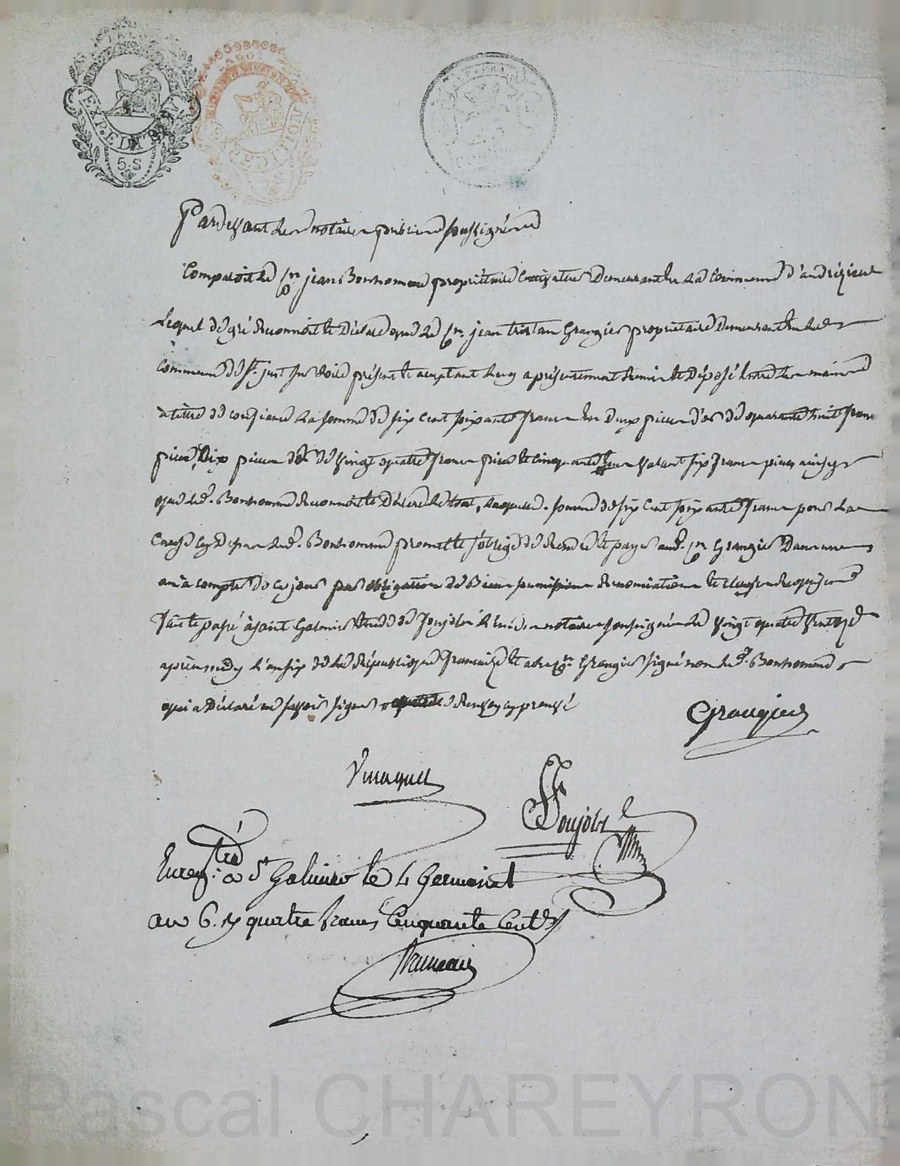 EXPEDITION
5.S
EXPEDITION
Pardevant les notaires publics soussignés
Comparoit le Sr jean Bonhomme propriétaire Cultivateur Demeurant en la Commune d'andrézieux
Lequel de gré Reconnoit et Déclare que le Sr jean tristan Grangier propriétaire Demeurant en la
Commune de St just sur Loire présent et acceptant luy a présentement Remis et Déposé entre les mains
a titre de confiance La somme de six Cent soixante francs En Deux pieces d'or de quarante huit francs
piece, Dix pieces d'or de vingt quatre francs piece et cinquante valant six francs piece ainsy
que led. Bonhomme Reconnoit et Déclare laquelle somme de six Cent soixante francs pour la
Cause cy Dessus led. Bonhomme promet et s'oblige de Rendre et payer aud. Sr Grangier Dans un
an a compter de ce jour par obligation de Biens soumissions Renonciations et clauses Requises
fait et passé a saint Galmier Etude de Soujolé l'un des notaires soussignés le vingt quatre Ventose
après midy L'an six de la République française et a led. Sr Grangier signé non le d. Bonhomme
qui a Déclaré ne savoir signer de Enquis approuvé
Grangier
Soujolé
Enregtré a St Galmier le 4 Germinal
an 6. R quatre francs Cinquante Cent.
Pascal CHAREYRON